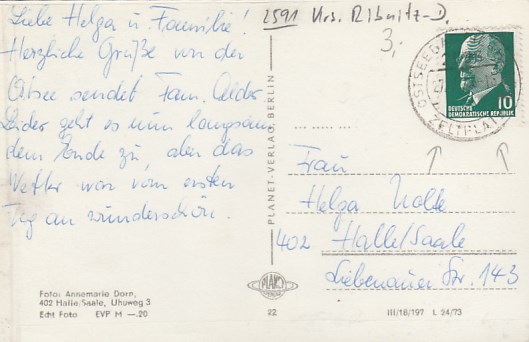 Liebe Helga u. Familie!
Herzliche Grüße von der
Ostsee sendet Fam.
Leider geht es nun langsam
dem Ende zu, aber das
Wetter war vom ersten
Tag an wunderschön.
Foto: Annemarie Dorn,
402 Halle/Saale, Uhuweg 3
Echt Foto EVP M —.20
PLANET-VERLAG, BERLIN
PLANET
VERLAG
22
2591 Krs. Ribnitz-D.
3,-
OSTSEEBAD
ZELTPLATZ
10
DEUTSCHE
DEMOKRATISCHE REPUBLIK
Frau
Helga Nolte
402 Halle/Saale
Liebenauer Str. 143
III/18/197 L 24/73